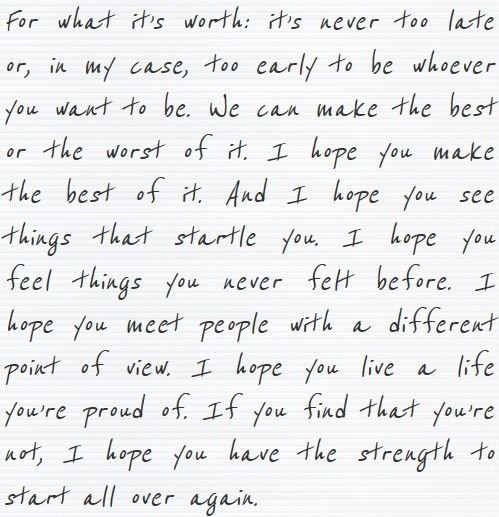 For what it's worth: it's never too late
or, in my case, too early to be whoever
you want to be. We can make the best
or the worst of it. I hope you make
the best of it. And I hope you see
things that startle you. I hope you
feel things you never felt before. I
hope you meet people with a different
point of view. I hope you live a life
you're proud of. If you find that you're
not, I hope you have the strength to
start all over again.